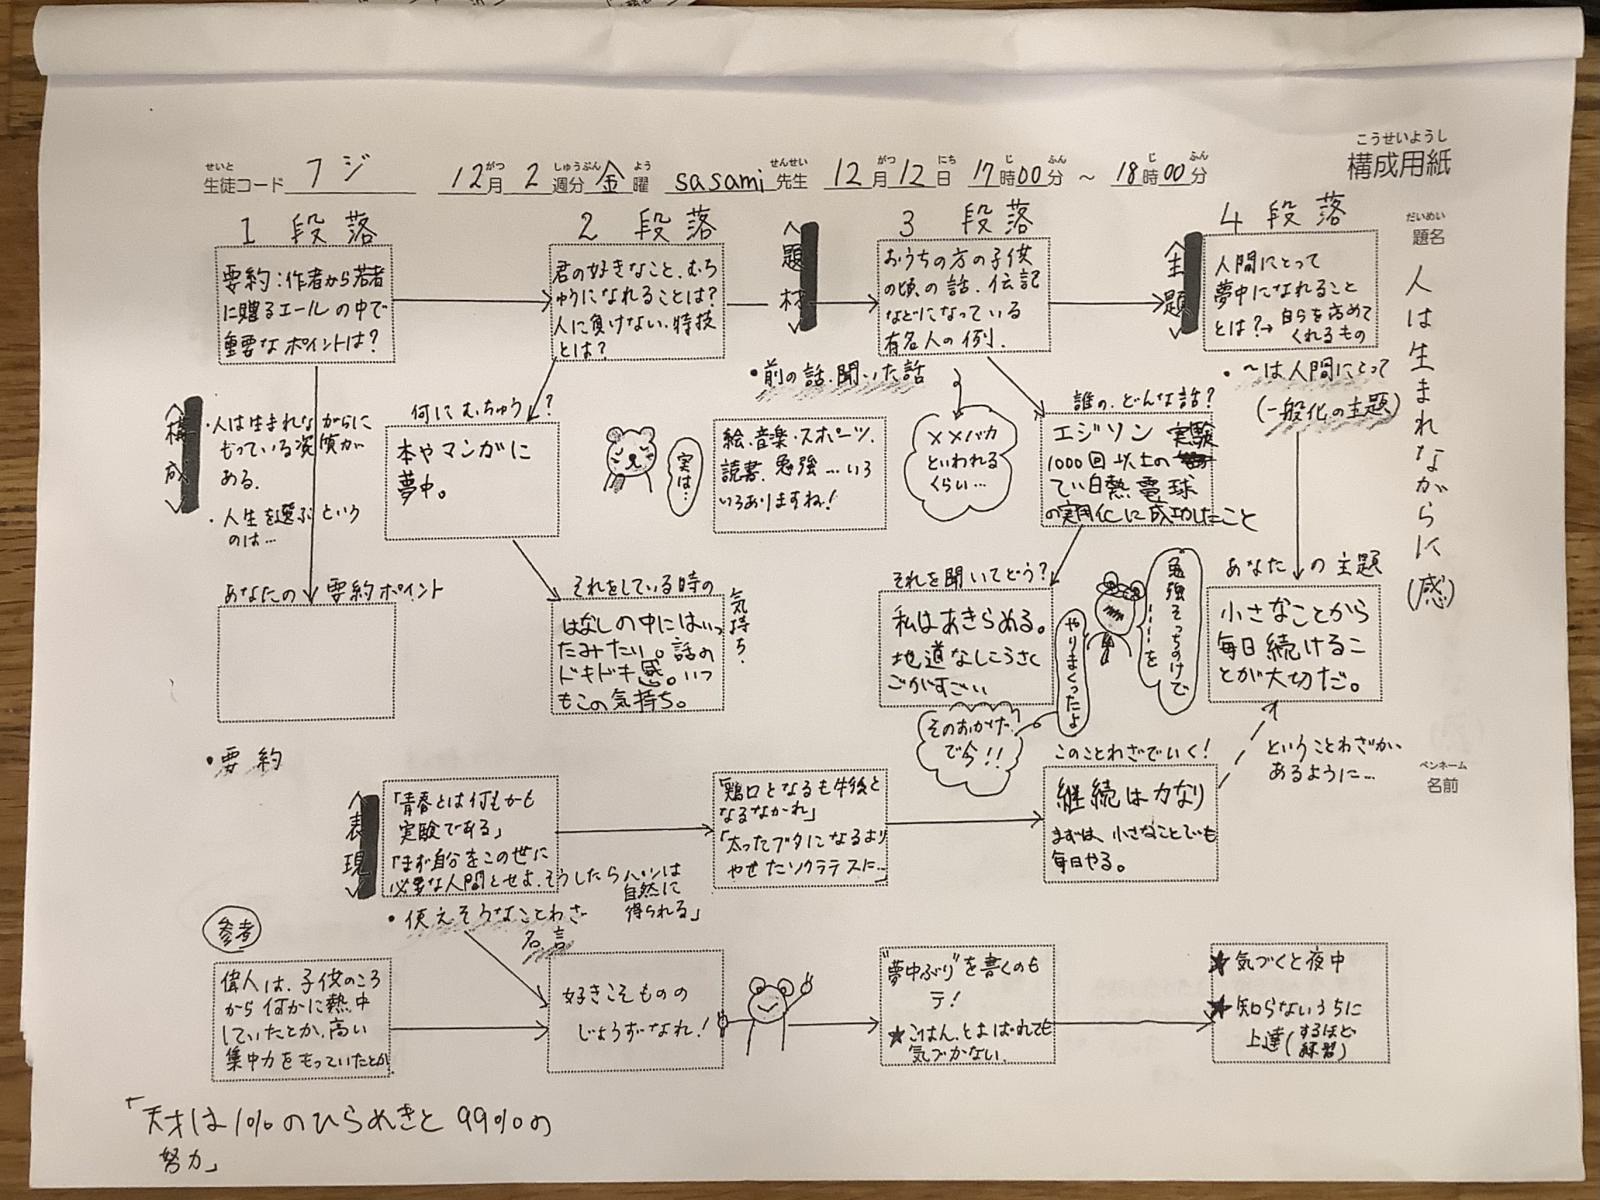 こうせいようし
構成用紙
せいと
生徒コード フジ
がつ しゅうぶん よう せんせい がつ にち じ ふん じ ふん
12月 2週分 金曜 sasami先生 12月12日 17時00分 ～ 18時00分
だいめい
題名
人は生まれながらに(感)
ペンネーム
名前
1 段落
要約:作者から若者
に贈るエールの中で
重要なポイントは?
<構成>
・人は生まれながらに
もっている資質が
ある.
・人生を選ぶという
のは…
あなたの要約ポイント
・要約
2 段落
君の好きなこと、むち
ゅうになれることは?
人に負けない、特技
とは?
何にむちゅう?
本やマンガに
夢中。
実は…
絵、音楽・スポーツ、
読書、勉強…いろ
いろありますね!
それをしている時の
気持ち.
はなしの中にはいっ
たみたい。話の
ドキドキ感。いつ
もこの気持ち。
<題材>
3 段落
おうちの方の子供
の頃の話、伝記
などになっている
有名人の例.
・前の話、聞いた話
××バカ
といわれる
くらい…
誰の、どんな話?
エジソン 実験
1000回以上の
てい白熱電球
の実用化に成功したこと
それを聞いてどう?
私はあきらめる。
地道なしこうさく
ごがすごい
勉強そっちのけで
……を
やりまくったよ
そのおかげ
で今!!
<主題>
4 段落
人間にとって
夢中になれること
とは?→自らを高めて
くれるもの
・～は人間にとって
(一般化の主題)
あなたの主題
小さなことから
毎日続けるこ
とが大切だ。
ということわざが、
あるように…
<表現>
「青春とは何もかも
実験である」
「まず自分をこの世に
必要な人間とせよ.そうしたらパンは
自然に
得られる」
・使えそうなことわざ
名言
「鶏口となるも牛後と
なるなかれ」
「太ったブタになるより
やせたソクラテスに…」
このことわざでいく!
継続は力なり
まずは、小さなことでも
毎日やる。
参考
偉人は、子供のころ
から何かに熱中
していたとか、高い
集中力をもっていたとか
好きこそものの
じょうずなれ!
"夢中ぶり"を書くのも
テ!
★ごはん、とよばれても
気づかない.
★気づくと夜中
★知らないうちに
上達(するほど
練習)
「天才は1%のひらめきと99%の
努力」